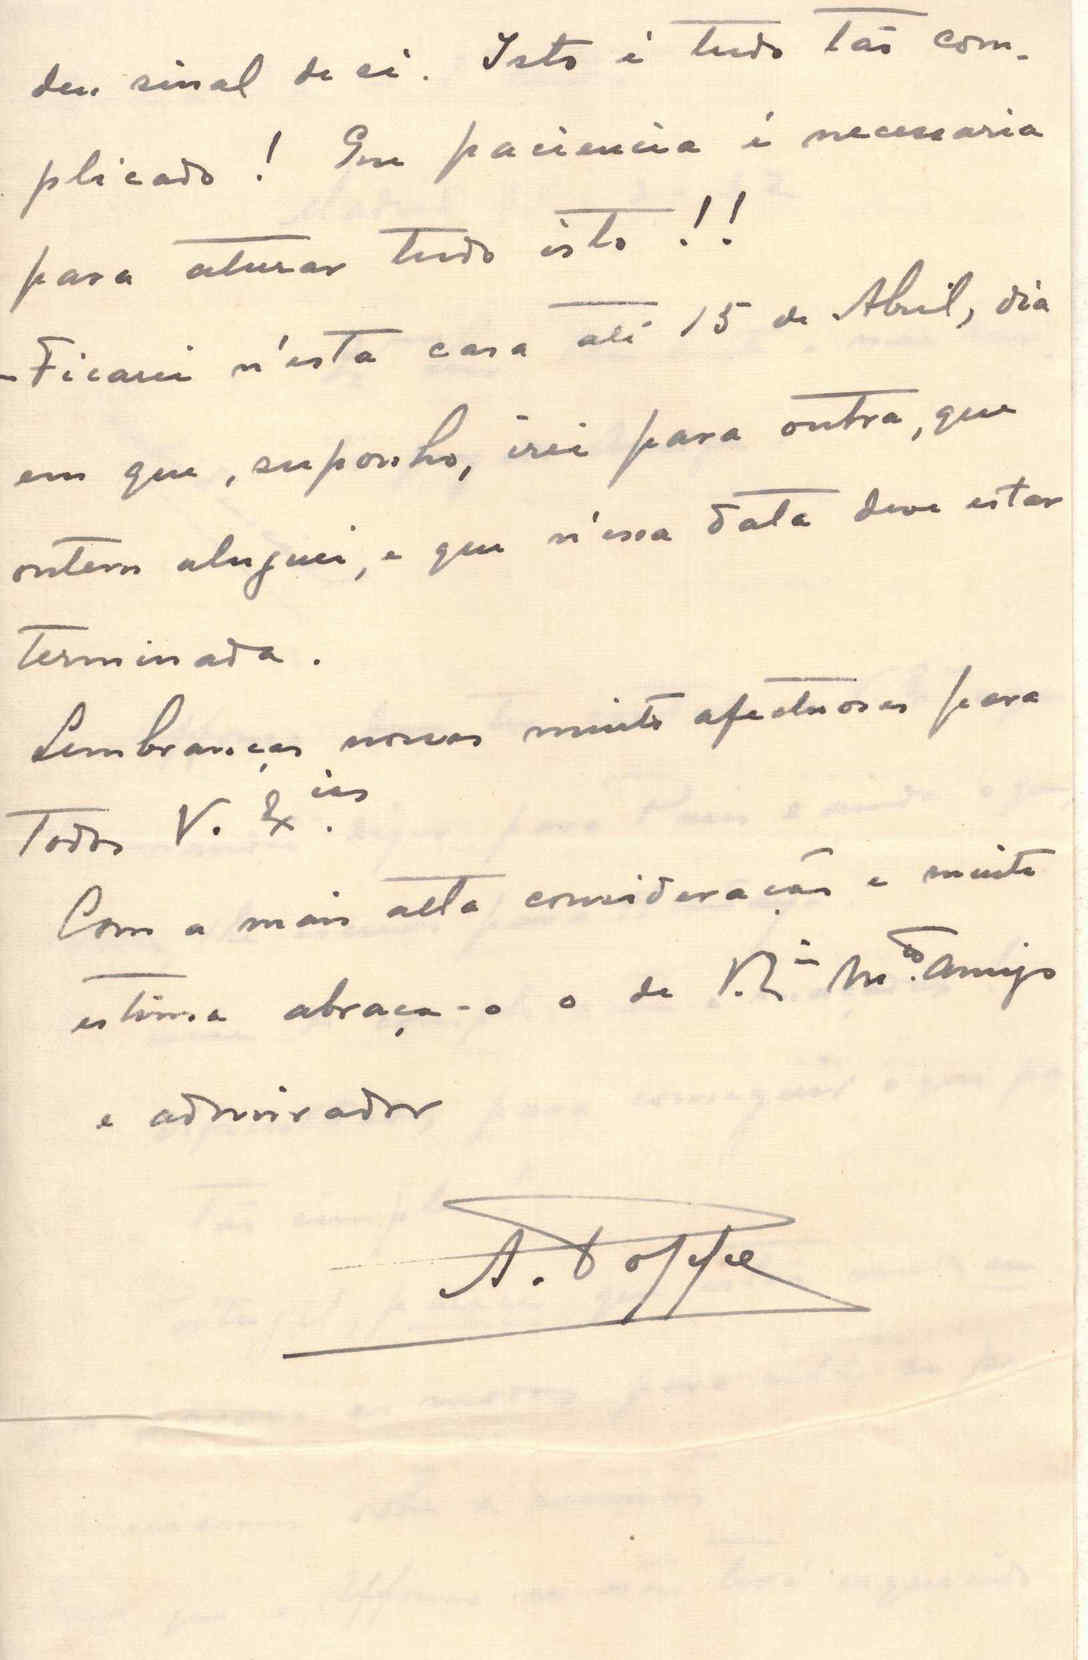 deu sinal de si. Isto é tudo tão com-
plicado! Que paciencia é necessaria
para aturar tudo isto!!
- Ficarei n'esta casa até 15 de Abril, dia
em que, suponho, irei para outra, que
ontem aluguei, e que n'essa data deve estar
terminada.
Lembranças nossas muito afectuosas para
todos V. Ex.ias
Com a mais alta consideração e muita
estima abraça-o o de V. Ex.ia M.to amigo
e admirador
A. Poppe